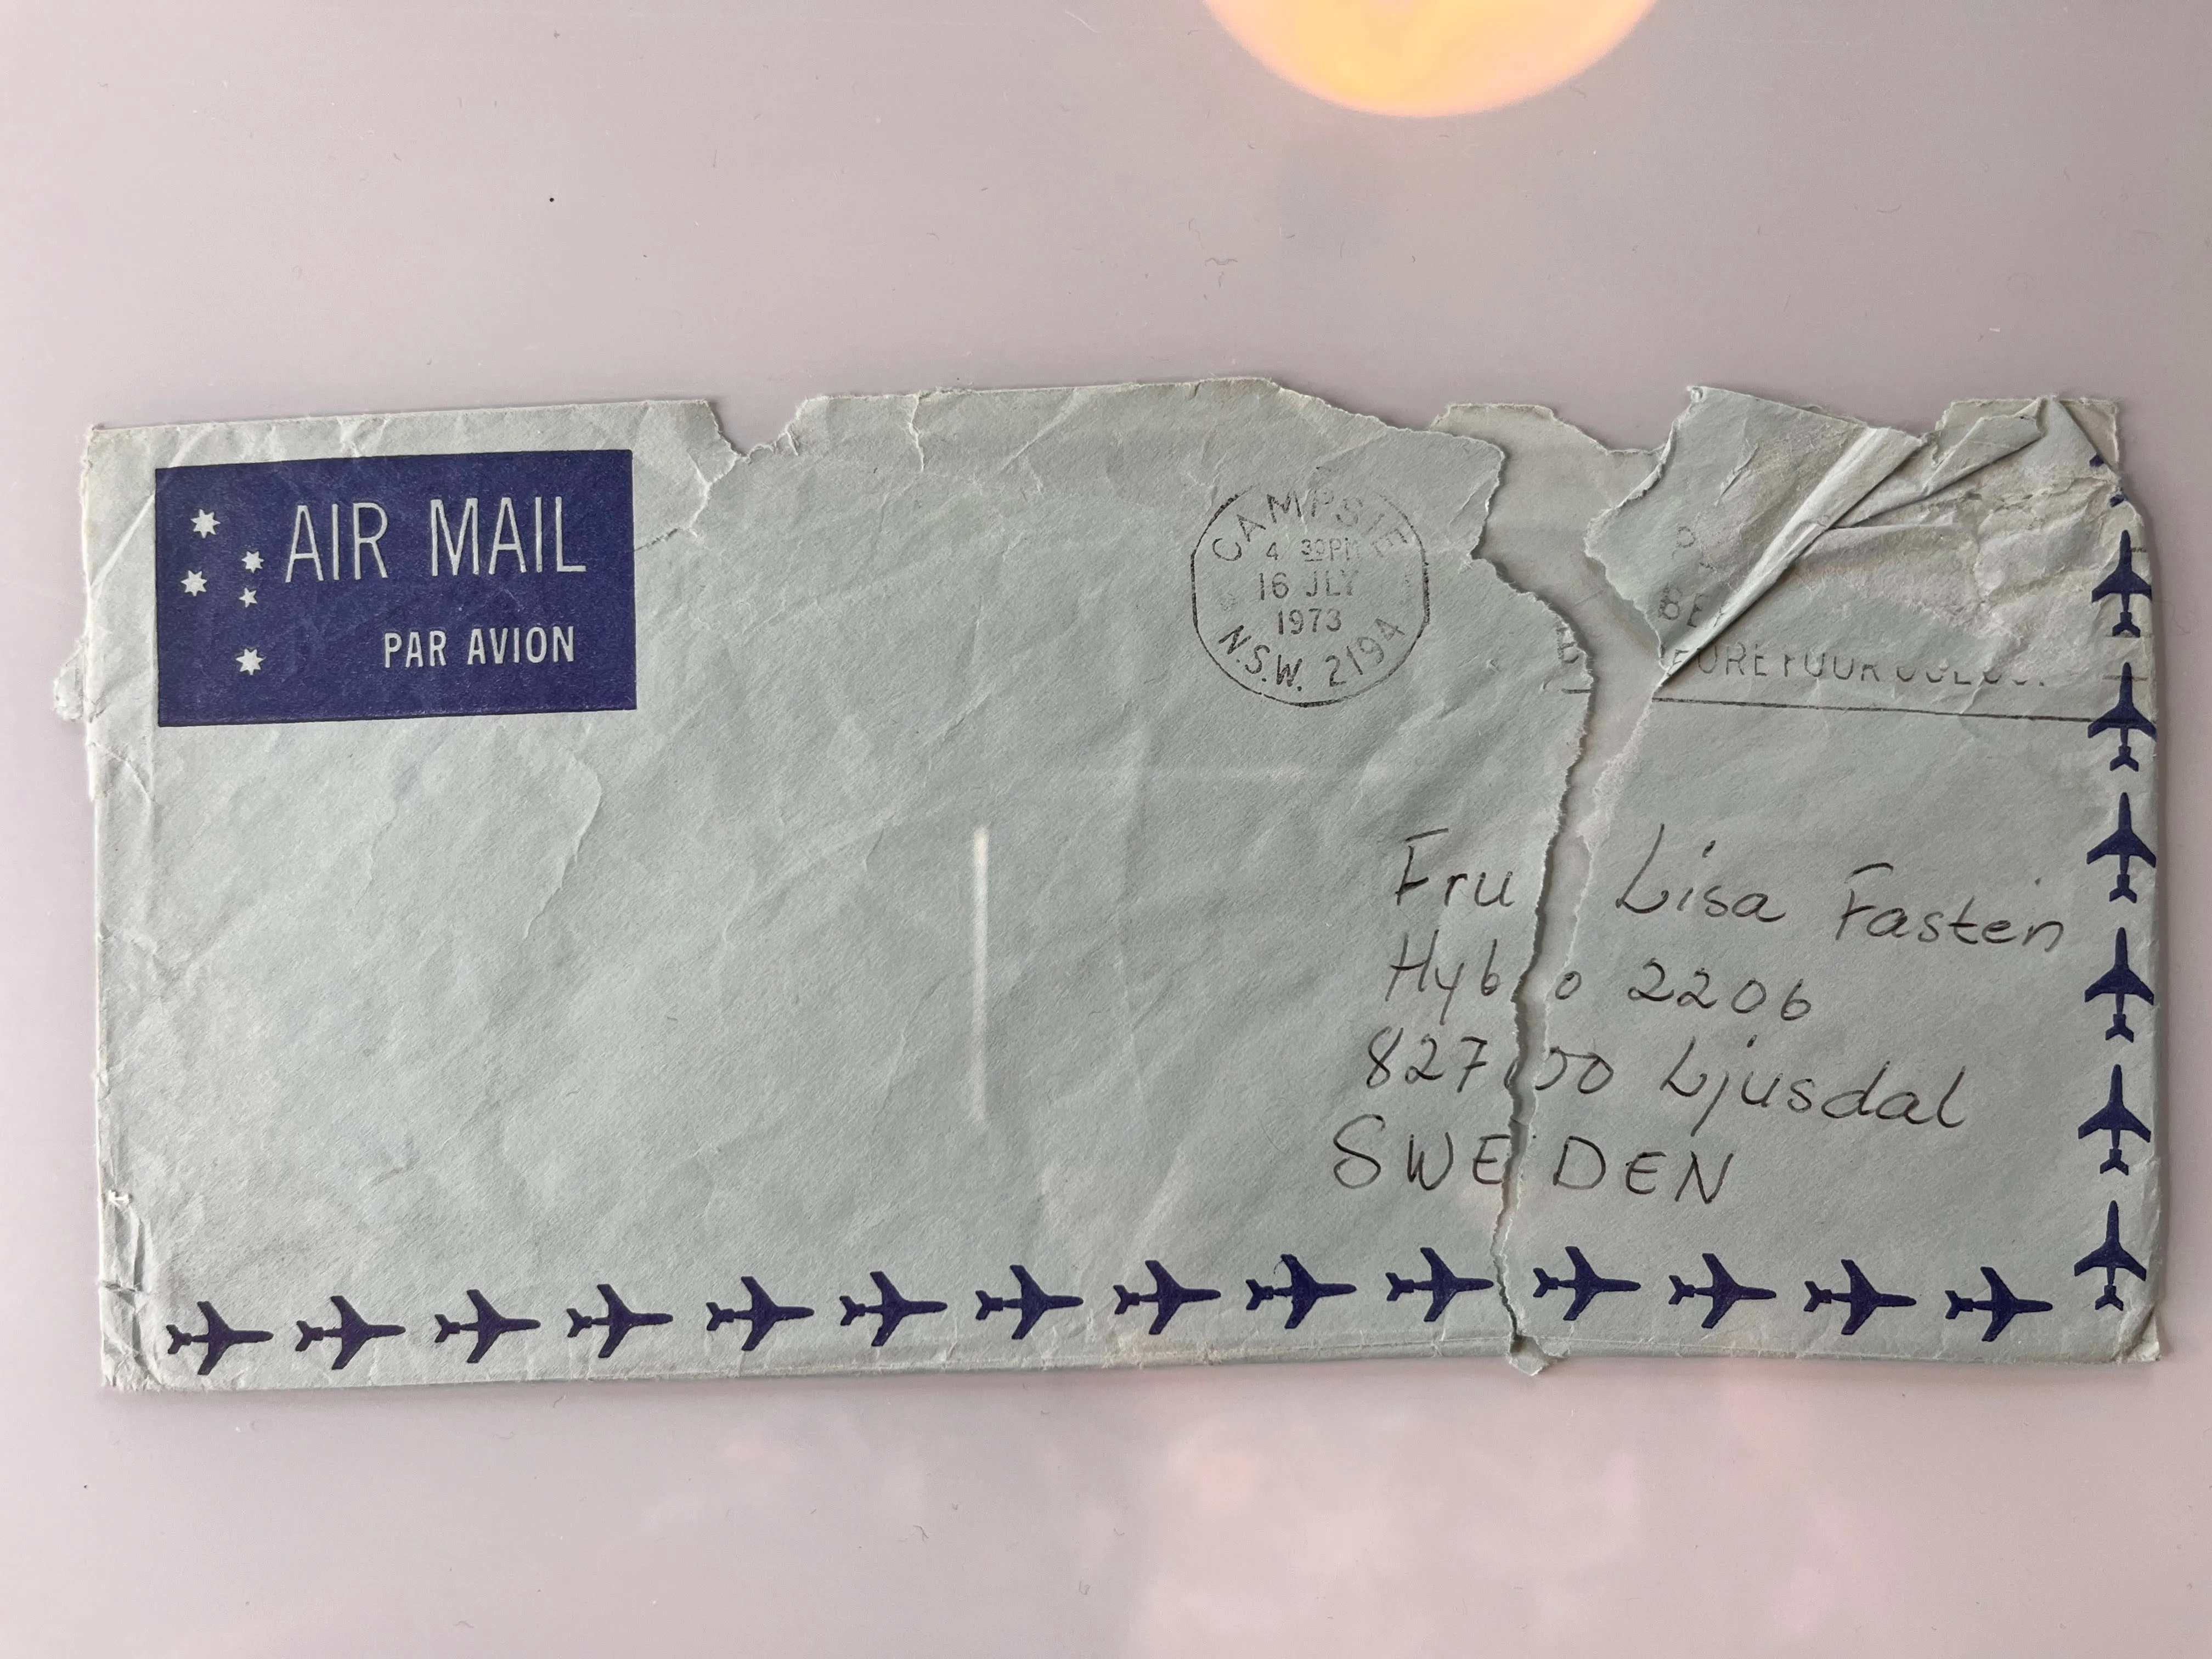 AIR MAIL
PAR AVION
CAMPSIE
4 30PM
16 JLY
1973
N.S.W. 2194
YOUR
Fru Lisa Fastén
Hybo 2206
827 00 Ljusdal
SWEDEN